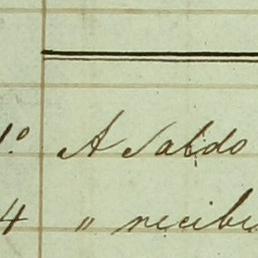 1º A Saldo
4 " recibi